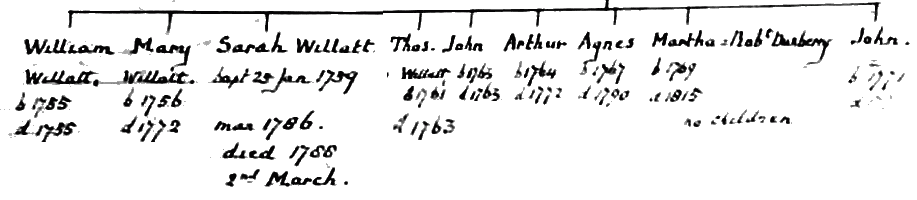 William Mary Sarah Willatt. Thos. John Arthur Agnes Martha = Robt Dasberry John.
Willatt. Willatt. bapt 25 Jan 1759 Willatt b 1763 b 1764 b 1767 b 1769 b 1771
b 1755 b 1756 b 1761 d 1763 d 1772 d 1790 d 1815 d
d 1755 d 1772 mar 1786. d 1763 no children
died 1788
2nd March.